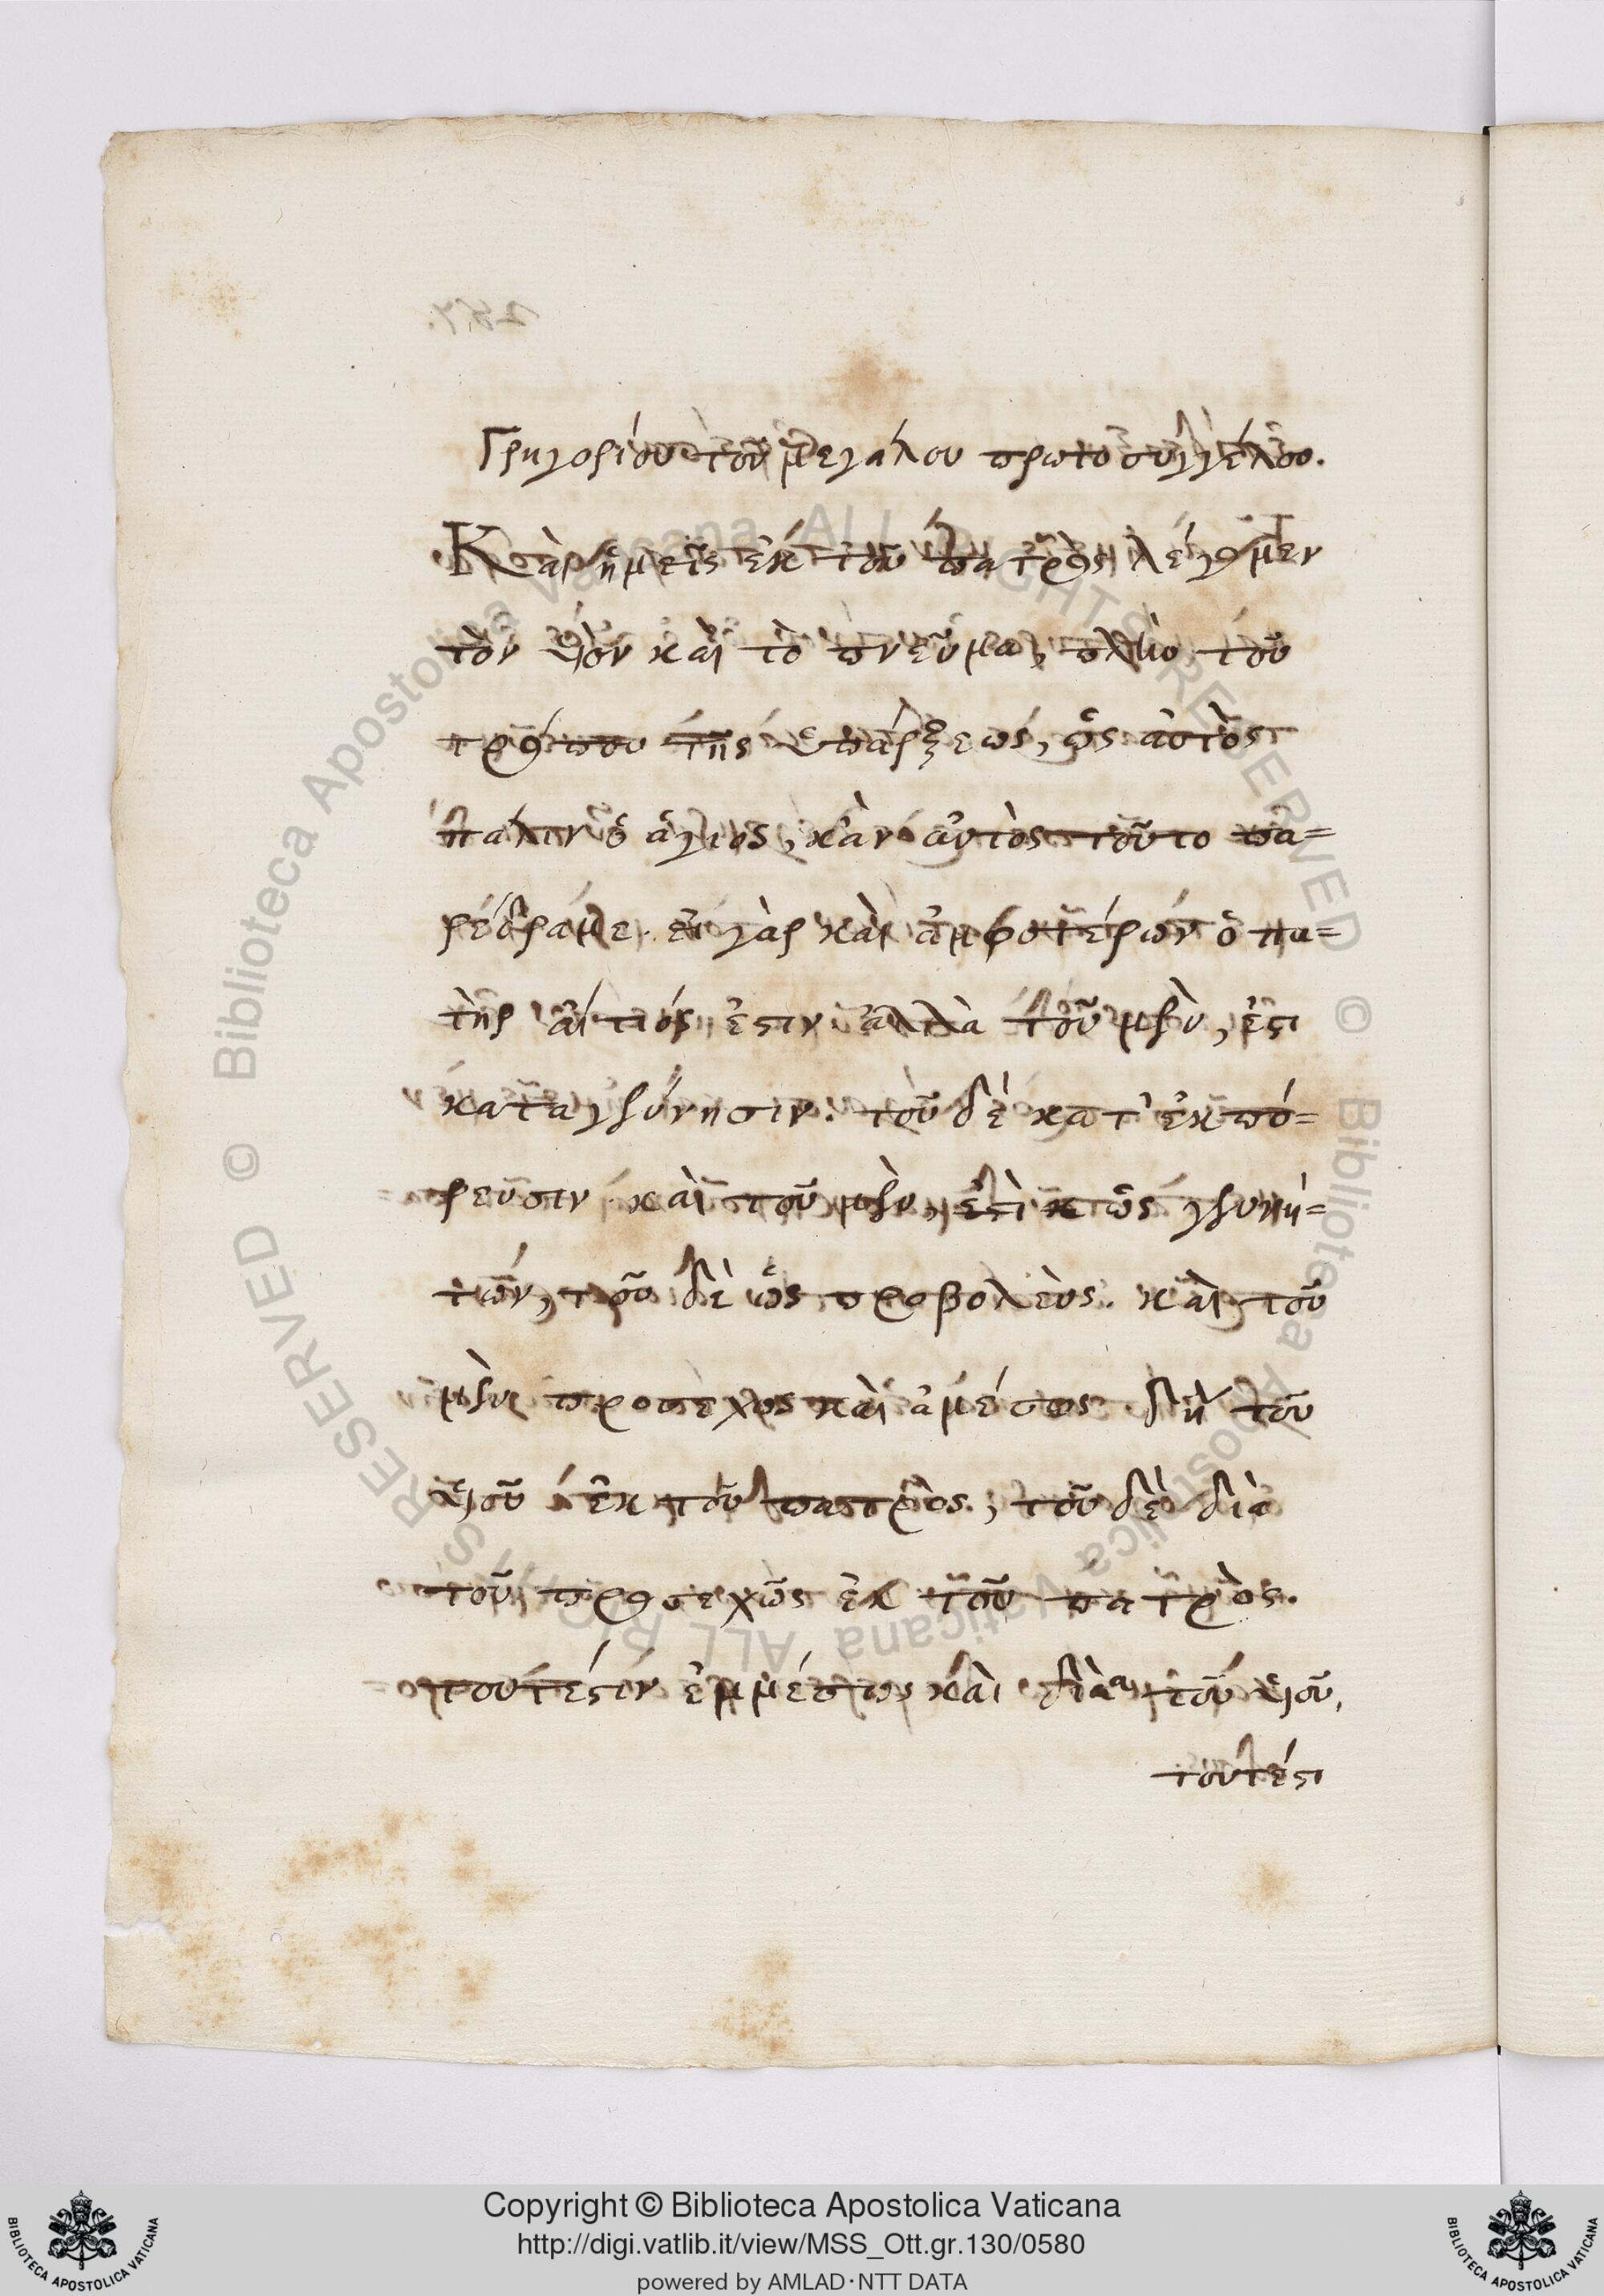 Γρηγορίου τοῦ μεγάλου πρωτοσυγγέλου.
Κἂν ἡμεῖς ἐκ τοῦ πατρὸς λέγομεν
τὸν υἱὸν καὶ τὸ πνεῦμα, πλὴν τοῦ
τρόπου τῆς ὑπάρξεως, ὡς αὐτὸς
πάλιν ὁ ἅγιος, κἂν αὐτὸς τοῦτο πα=
ρέδραμε. εἰ γὰρ καὶ ἀμφοτέρων ὁ πα=
τὴρ αἴτιός ἐστιν ἀλλὰ τοῦ μὲν, ἐστι
κατα γέννησιν. τοῦ δὲ κατ' ἐκπό=
ρευσιν. καὶ τοῦ μὲν, ἐστὶ ὡς γεννή=
τωρ, τοῦ δὲ ὡς προβολεὺς. καὶ τοῦ
μὲν προσεχος καὶ ἀμέσως δὴ τοῦ
υἱοῦ ἐκ τοῦ πατρὸς, τοῦ δὲ διὰ
τοῦ προσεχῶς ἐκ τοῦ πατρὸς.
τουτέστιν ἐμμέσως καὶ διὰ τοῦ υἱοῦ,
τουτέστι
Copyright © Biblioteca Apostolica Vaticana
http://digi.vatlib.it/view/MSS_Ott.gr.130/0580
powered by AMLAD·NTT DATA
BIBLIOTECA APOSTOLICA VATICANA
BIBLIOTECA APOSTOLICA VATICANA
© Biblioteca Apostolica Vaticana ALL RIGHTS RESERVED
© Biblioteca Apostolica Vaticana ALL RIGHTS RESERVED